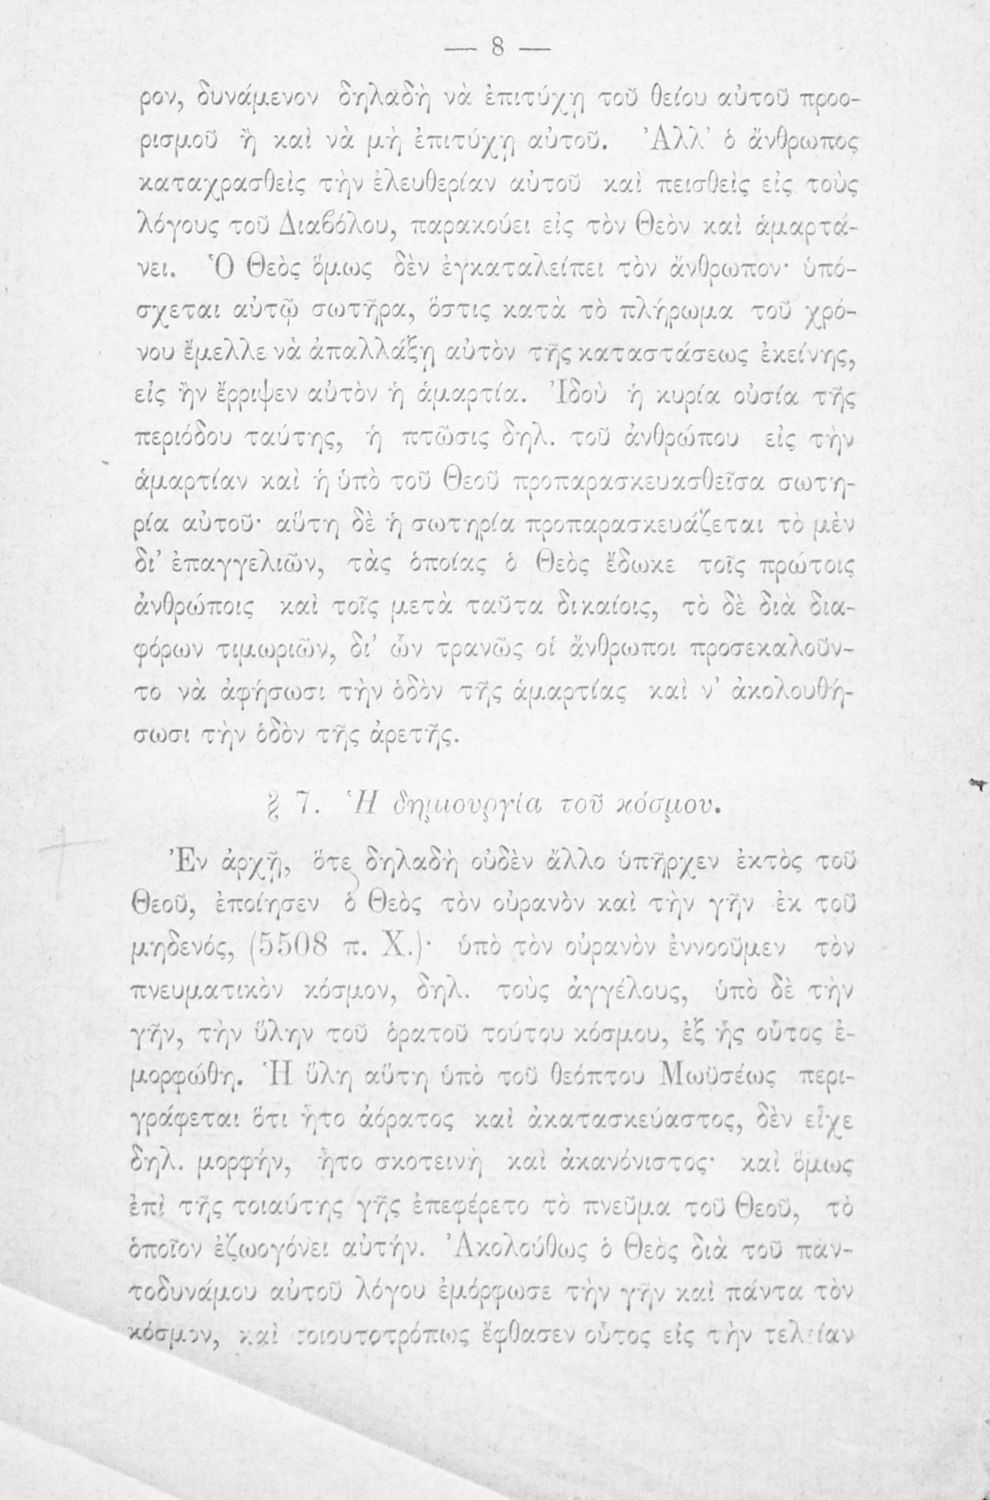 — 8 —
ρον, δυνάμενον δηλαδὴ νὰ ἐπιτύχῃ τοῦ θείου αὐτοῦ προο-
ρισμοῦ ἢ καὶ νὰ μὴ ἐπιτύχῃ αὐτοῦ. Ἀλλ’ ὁ ἄνθρωπος
καταχρασθεὶς τὴν ἐλευθερίαν αὐτοῦ καὶ πεισθεὶς εἰς τοὺς
λόγους τοῦ Διαβόλου, παρακούει εἰς τὸν Θεὸν καὶ ἁμαρτά-
νει. Ὁ Θεὸς ὅμως δὲν ἐγκαταλείπει τὸν ἄνθρωπον· ὑπό-
σχεται αὐτῷ σωτῆρα, ὅστις κατὰ τὸ πλήρωμα τοῦ χρό-
νου ἔμελλε νὰ ἀπαλλάξῃ αὐτὸν τῆς καταστάσεως ἐκείνης,
εἰς ἣν ἔρριψεν αὐτὸν ἡ ἁμαρτία. Ἰδοὺ ἡ κυρία οὐσία τῆς
περιόδου ταύτης, ἡ πτῶσις δηλ. τοῦ ἀνθρώπου εἰς τὴν
ἁμαρτίαν καὶ ἡ ὑπὸ τοῦ Θεοῦ προπαρασκευασθεῖσα σωτη-
ρία αὐτοῦ· αὕτη δὲ ἡ σωτηρία προπαρασκευάζεται τὸ μὲν
δι’ ἐπαγγελιῶν, τὰς ὁποίας ὁ Θεὸς ἔδωκε τοῖς πρώτοις
ἀνθρώποις καὶ τοῖς μετὰ ταῦτα δικαίοις, τὸ δὲ διὰ δια-
φόρων τιμωριῶν, δι’ ὧν τρανῶς οἱ ἄνθρωποι προσεκαλοῦν-
το νὰ ἀφήσωσι τὴν ὁδὸν τῆς ἁμαρτίας καὶ ν’ ἀκολουθή-
σωσι τὴν ὁδὸν τῆς ἀρετῆς.
§ 7. Ἡ δημιουργία τοῦ κόσμου.
Ἐν ἀρχῇ, ὅτε δηλαδὴ οὐδὲν ἄλλο ὑπῆρχεν ἐκτὸς τοῦ
Θεοῦ, ἐποίησεν ὁ Θεὸς τὸν οὐρανὸν καὶ τὴν γῆν ἐκ τοῦ
μηδενός, (5508 π. Χ.)· ὑπὸ τὸν οὐρανὸν ἐννοοῦμεν τὸν
πνευματικὸν κόσμον, δηλ. τοὺς ἀγγέλους, ὑπὸ δὲ τὴν
γῆν, τὴν ὕλην τοῦ ὁρατοῦ τούτου κόσμου, ἐξ ἧς οὗτος ἐ-
μορφώθη. Ἡ ὕλη αὕτη ὑπὸ τοῦ θεόπτου Μωϋσέως περι-
γράφεται ὅτι ἦτο ἀόρατος καὶ ἀκατασκεύαστος, δὲν εἶχε
δηλ. μορφήν, ἦτο σκοτεινὴ καὶ ἀκανόνιστος· καὶ ὅμως
ἐπὶ τῆς τοιαύτης γῆς ἐπεφέρετο τὸ πνεῦμα τοῦ Θεοῦ, τὸ
ὁποῖον ἐζωογόνει αὐτήν. Ἀκολούθως ὁ Θεὸς διὰ τοῦ παν-
τοδυνάμου αὐτοῦ λόγου ἐμόρφωσε τὴν γῆν καὶ πάντα τὸν
κόσμον, καὶ τοιουτοτρόπως ἔφθασεν οὗτος εἰς τὴν τελείαν